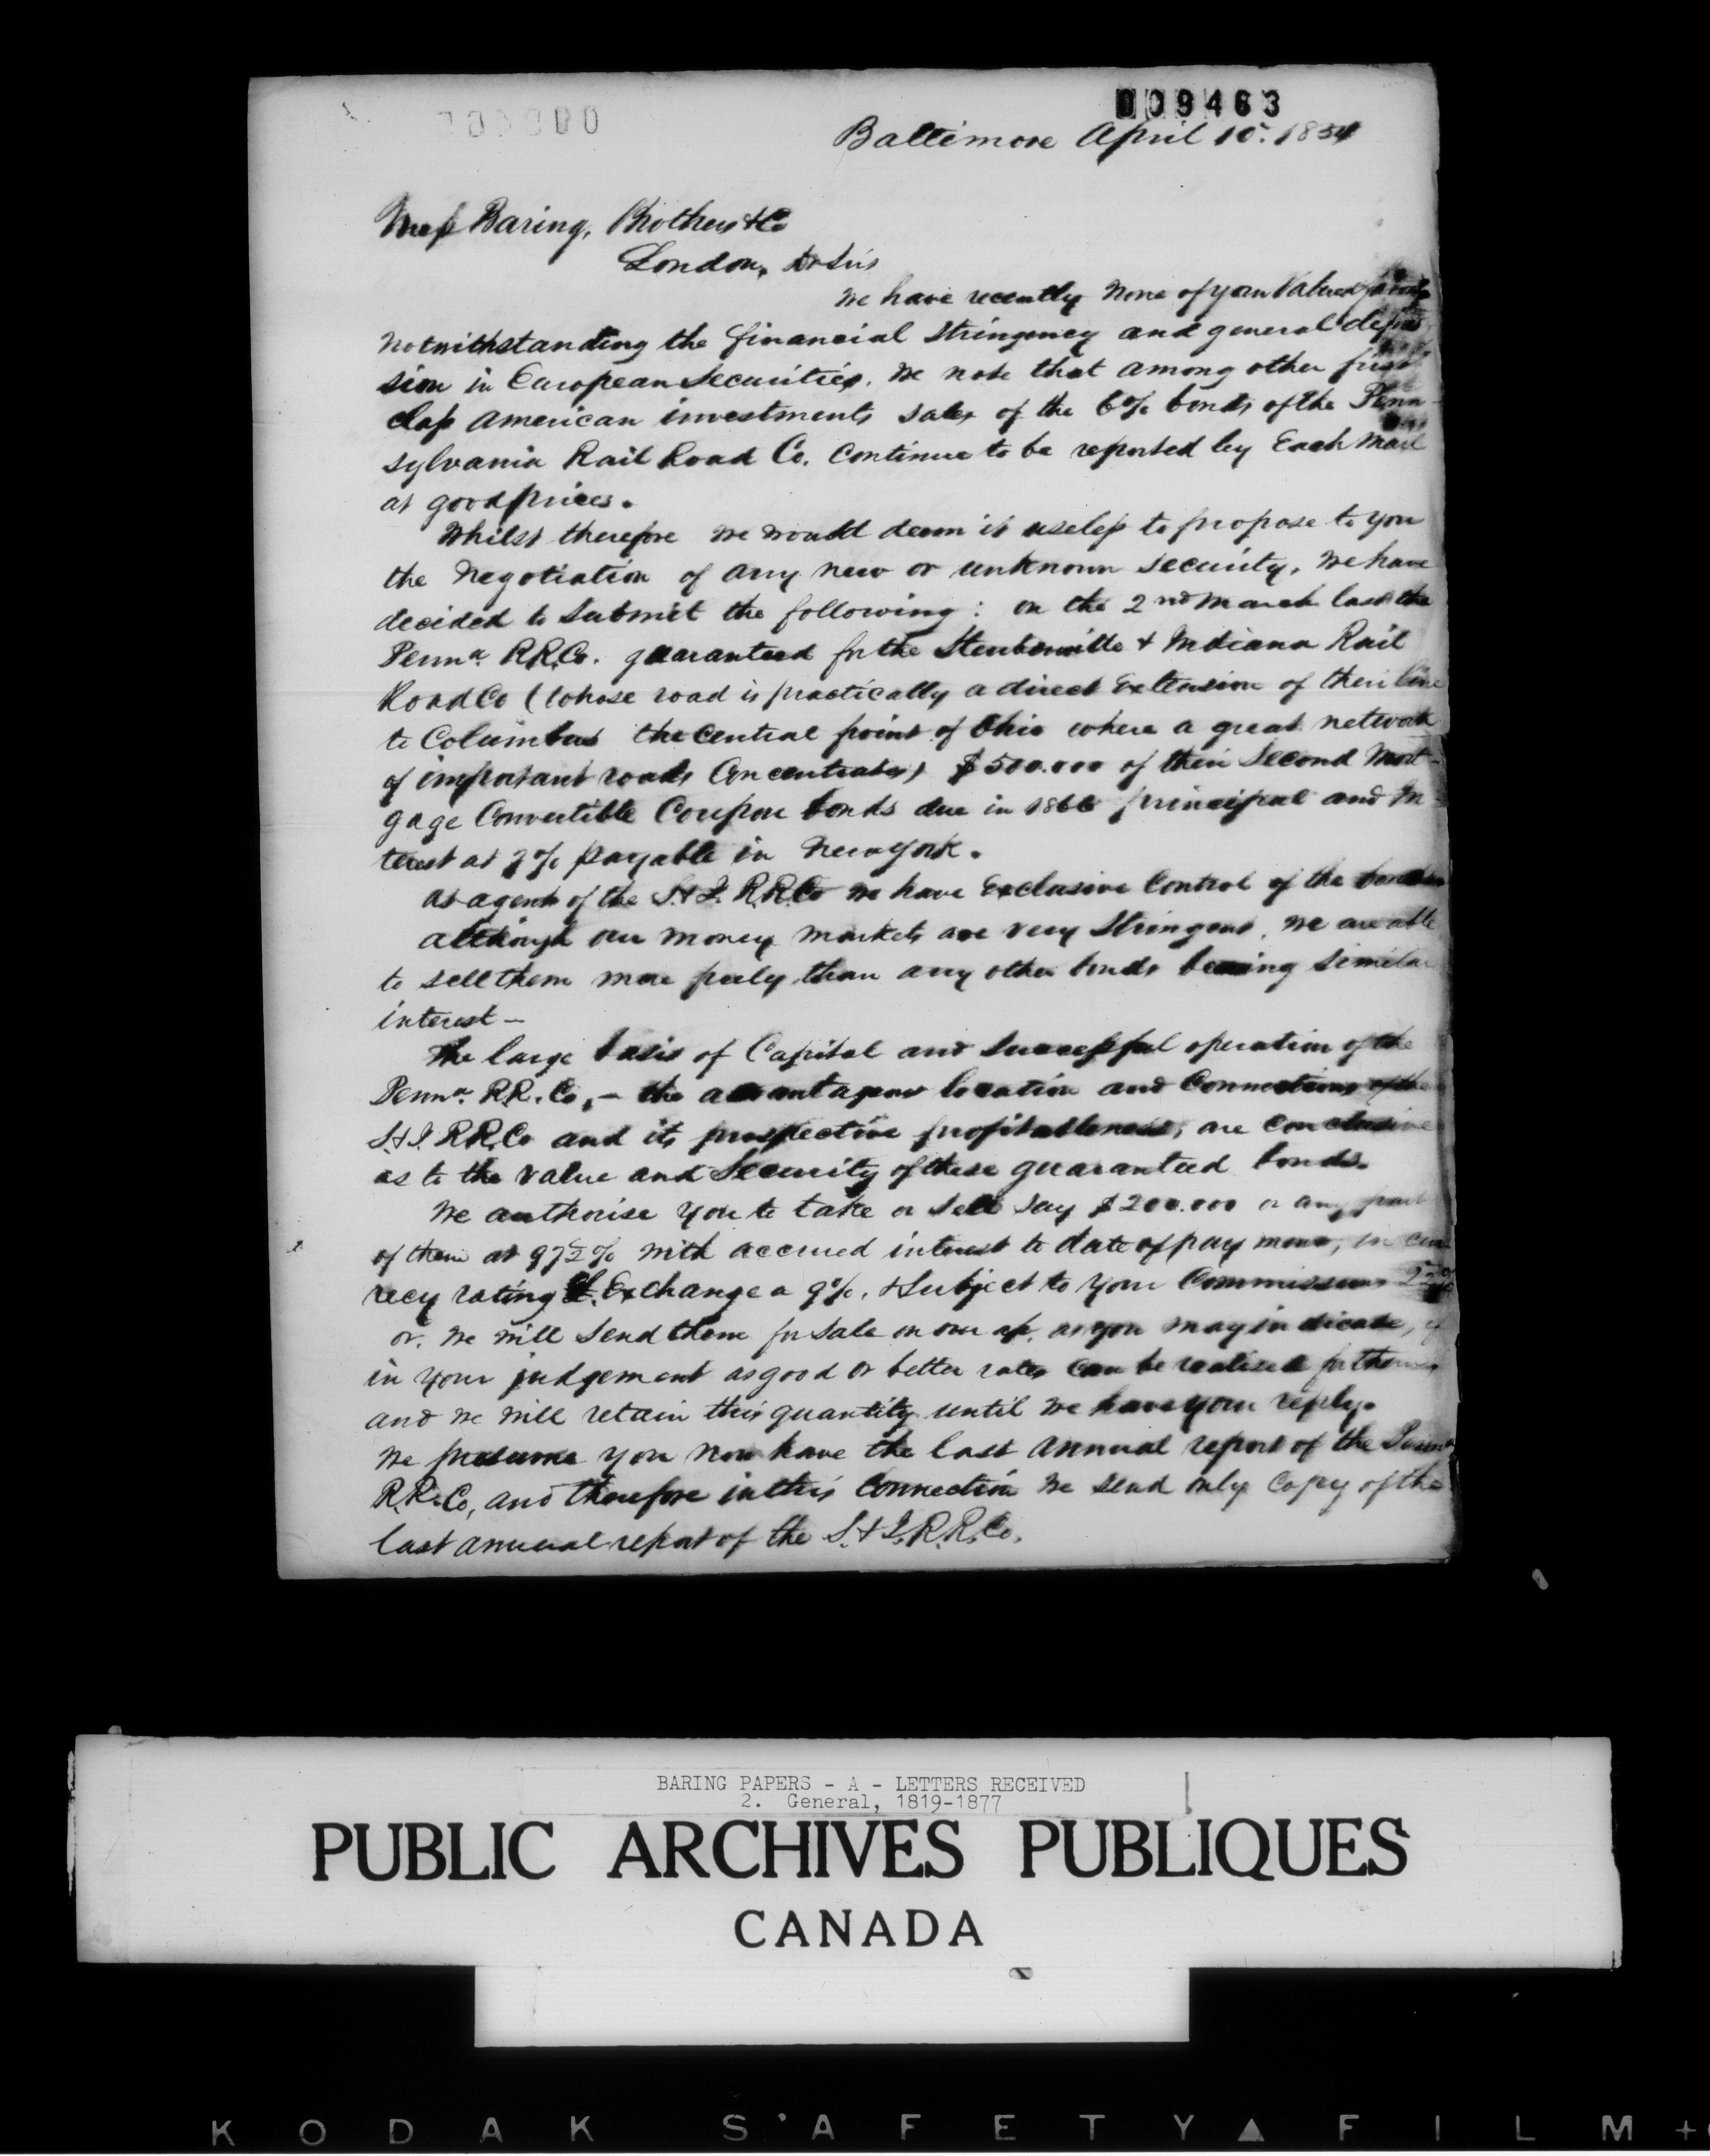 009463
Baltimore April 10. 1854
Mess Baring, Brothers & Co
London, Dr Sirs
We have recently none of your valued favors
notwithstanding the financial stringency and general depres
sion in European Securities. We note that among other first
class American investments sales of the 6% bonds of the Penn
sylvania Rail Road Co. continue to be reported by Each Mail
at good prices.
Whilst therefore we would deem it useless to propose to you
the Negotiation of any new or unknown security, we have
decided to submit the following: on the 2nd March last the
Penna. R.R.Co. guaranteed for the Steubenville & Indiana Rail
Road Co (whose road is practically a direct Extension of their line
to Columbus the central point of Ohio where a great network
of important roads Concentrates) $500.000 of their Second Mort-
gage Convertible Coupon bonds due in 1866 principal and In
terest at 7% payable in New York.
As agents of the S.& I. R.R.Co we have Exclusive Control of the bonds
although our money markets are very Stringent, we are able
to sell them more freely than any other bonds bearing similar
interest —
The large basis of Capital and successful operation of the
Penna. R.R. Co, — the advantageous location and Connections of the
S.& I. R.R.Co and its prospective profitableness, are conclusive
as to the value and Security of these guaranteed bonds.
We authorise you to take or sell say $200.000 or any part
of them at 97½% with accrued interest to date of payment, in cur
recy rating St. Exchange a 9%, & Subject to your Commission
or, we will send them for sale on our a/c, as you may indicate, if
in your judgement as good or better rates can be realised for them
and we will retain this quantity until we have your reply.
We presume you now have the last annual report of the Penna
R.R. Co, and therefore in this Connection we send only copy of the
last annual report of the S.& I. R.R.Co.
BARING PAPERS - A - LETTERS RECEIVED
2. General, 1819-1877
PUBLIC ARCHIVES PUBLIQUES
CANADA
KODAK SAFETY▲FILM +